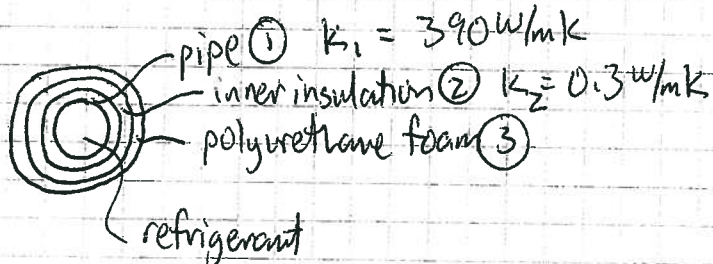 pipe ① k₁ = 390 W/mK
inner insulation ② k₂ = 0.3 W/mK
polyurethane foam ③
refrigerant